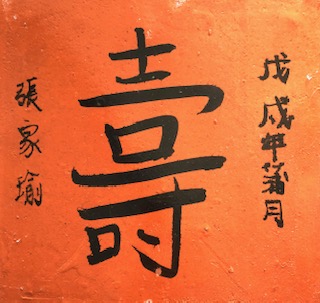 戊戌年蒲月
壽
張家瑜